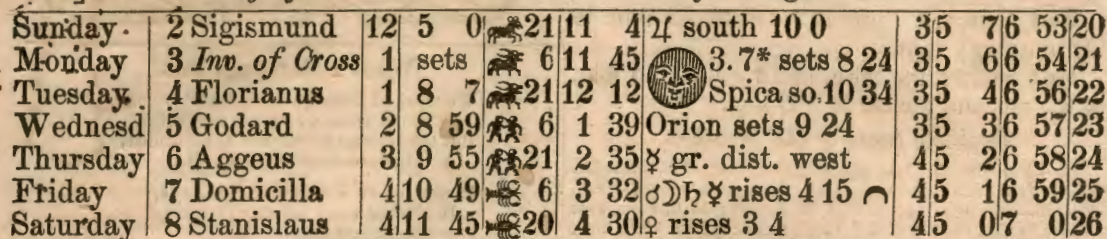 Sunday 2 Sigismund 12 5 0 21 11 4 ♃ south 10 0 3 5 7 6 53 20
Monday 3 Inv. of Cross 1 sets 6 11 45 3. 7* sets 8 24 3 5 6 6 54 21
Tuesday 4 Florianus 1 8 7 21 12 12 Spica so. 10 34 3 5 4 6 56 22
Wednesd 5 Godard 2 8 59 6 1 39 Orion sets 9 24 3 5 3 6 57 23
Thursday 6 Aggeus 3 9 55 21 2 35 ☿ gr. dist. west 4 5 2 6 58 24
Friday 7 Domicilla 4 10 49 6 3 32 ☌☽♄ ☿ rises 4 15 4 5 1 6 59 25
Saturday 8 Stanislaus 4 11 45 20 4 30 ♀ rises 3 4 4 5 0 7 0 26